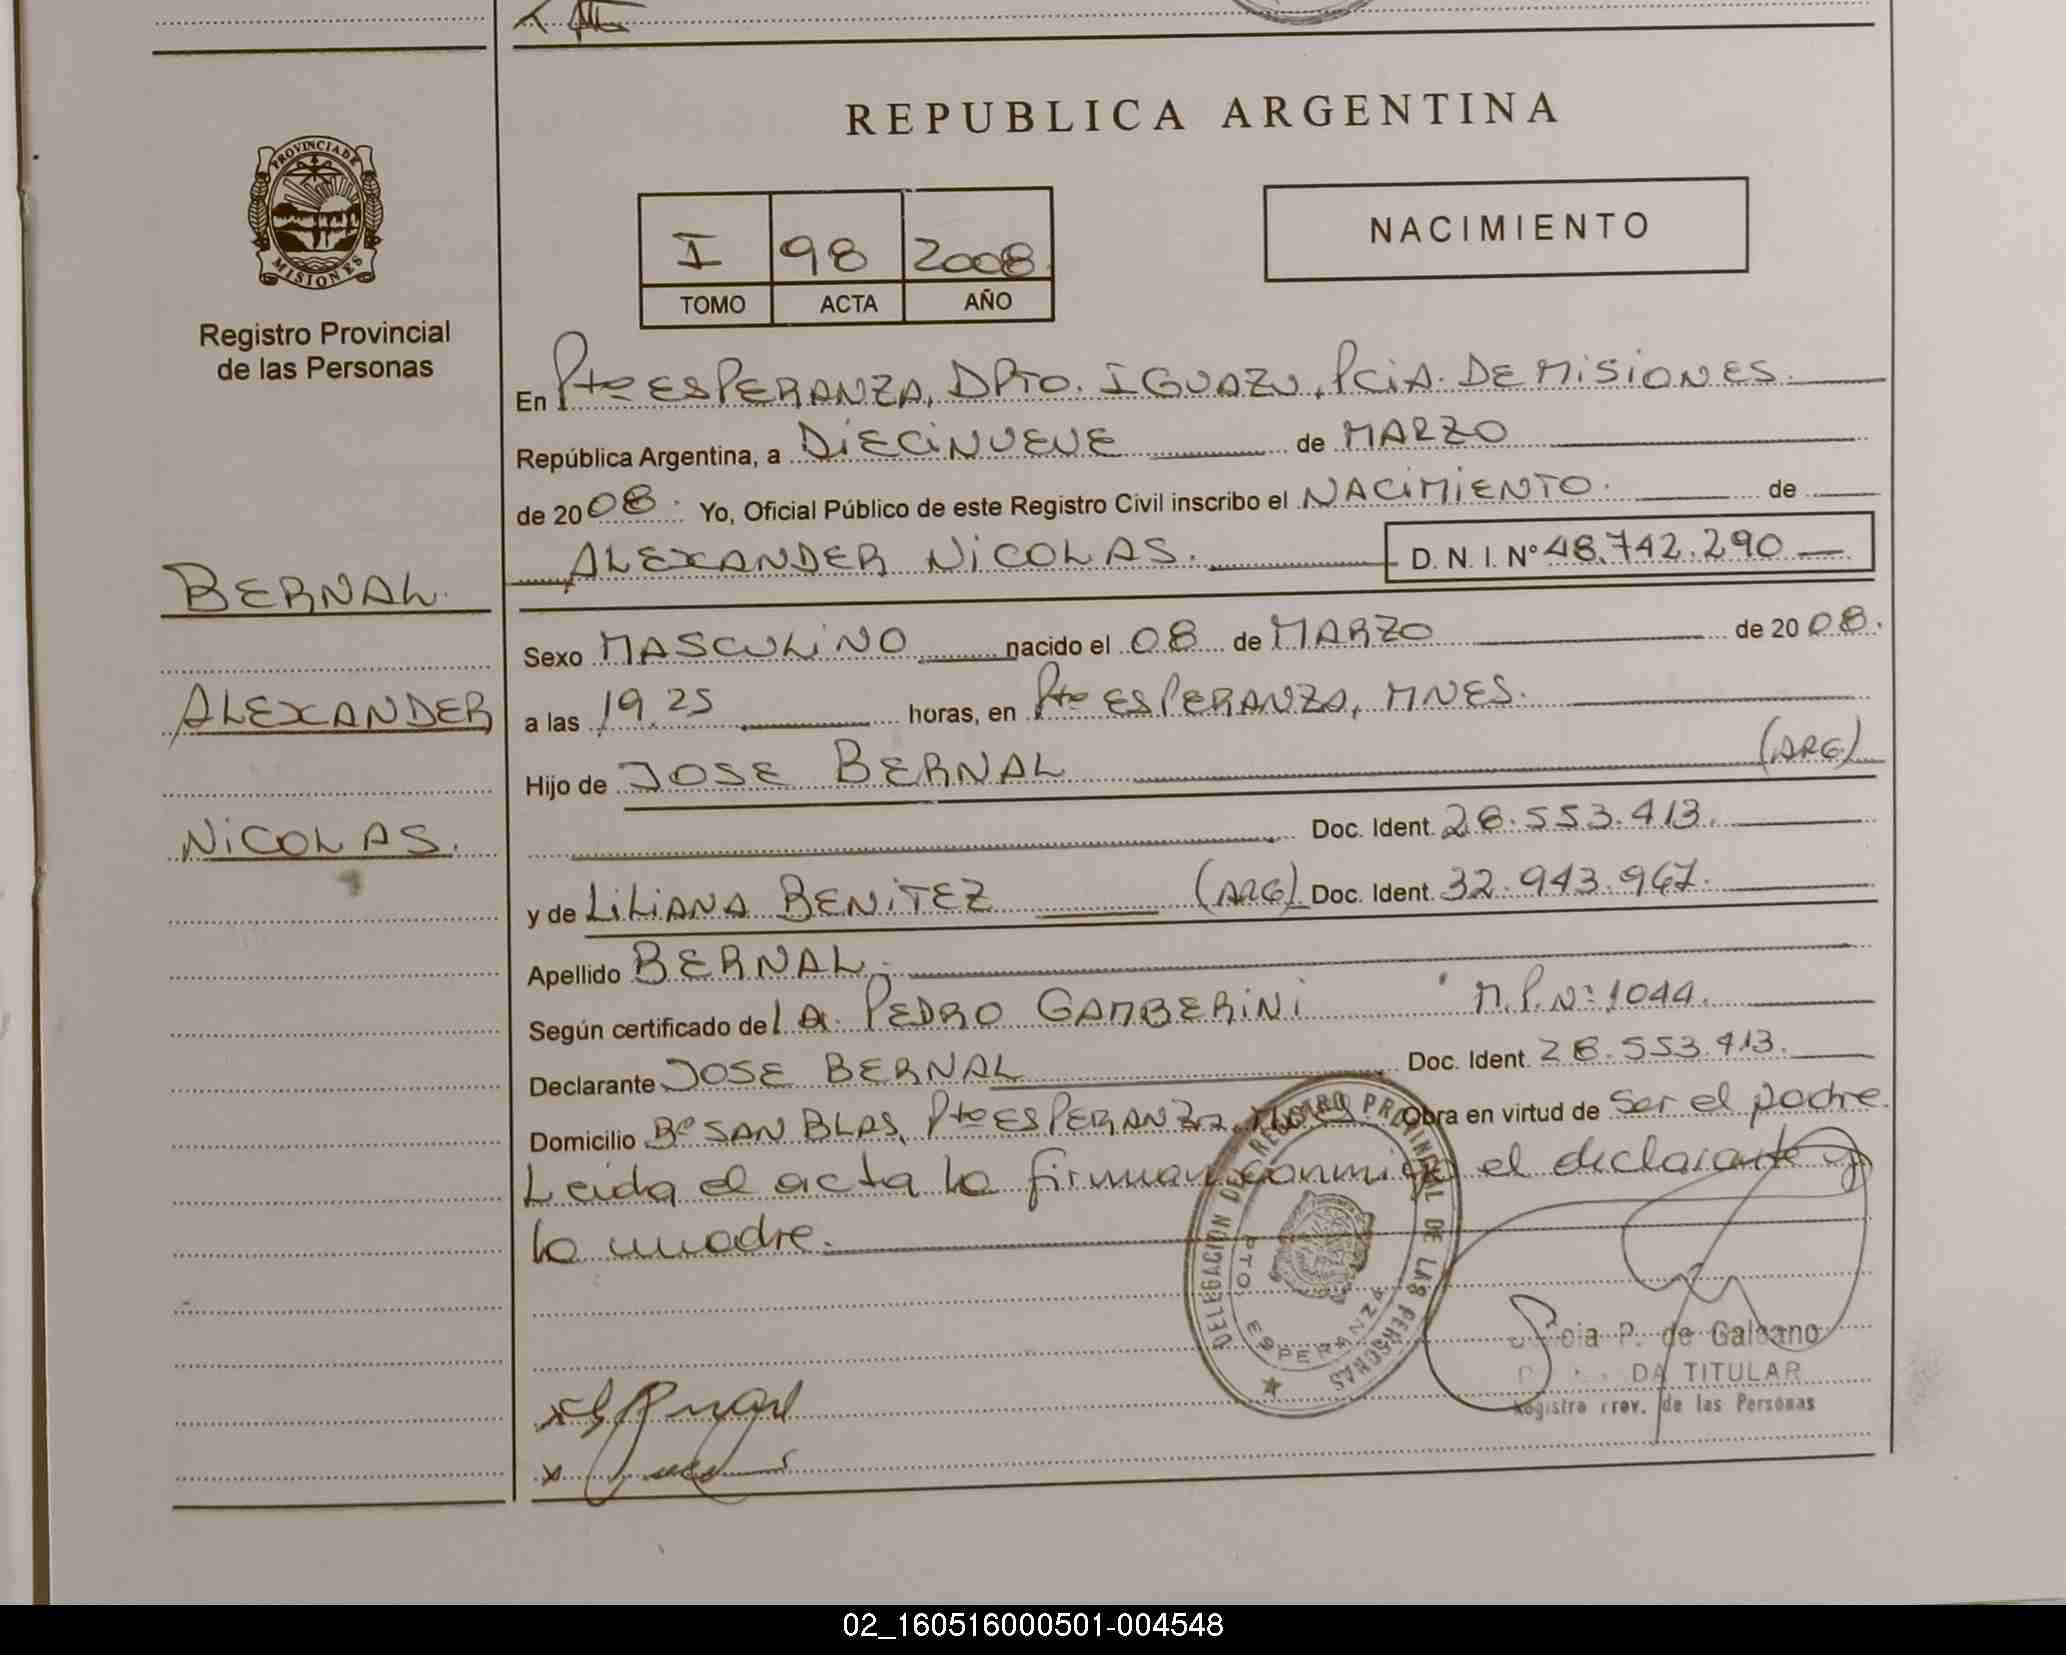 REPUBLICA ARGENTINA
PROVINCIA DE
MISIONES
Registro Provincial
de las Personas
I 98 2008
TOMO ACTA AÑO
NACIMIENTO
En Pto ESPERANZA, DPTO. IGUAZU, PCIA. DE MISIONES.
República Argentina, a DIECINUEVE de MARZO
de 2008. Yo, Oficial Público de este Registro Civil inscribo el NACIMIENTO. de
ALEXANDER NICOLAS. D. N. I. N° 48.742.290
BERNAL.
ALEXANDER
NICOLAS.
Sexo MASCULINO nacido el 08 de MARZO de 2008.
a las 19.25 horas, en Pto ESPERANZA, MNES.
Hijo de JOSE BERNAL (ARG)
Doc. Ident. 28.553.413.
y de LILIANA BENITEZ (ARG) Doc. Ident. 32.943.967.
Apellido BERNAL.
Según certificado del PEDRO GAMBERINI M.P.N°: 1044.
Declarante JOSE BERNAL Doc. Ident. 28.553.413.
Domicilio B° SAN BLAS, Pto ESPERANZA, Obra en virtud de ser el padre.
Leida el acta la firman conmigo el declarante y
la madre.
DELEGACION DE REGISTRO PROVINCIAL DE LAS PERSONAS
PTO. ESPERANZA
P. de Galeano
TITULAR
Registro Prov. de las Personas
02_160516000501-004548